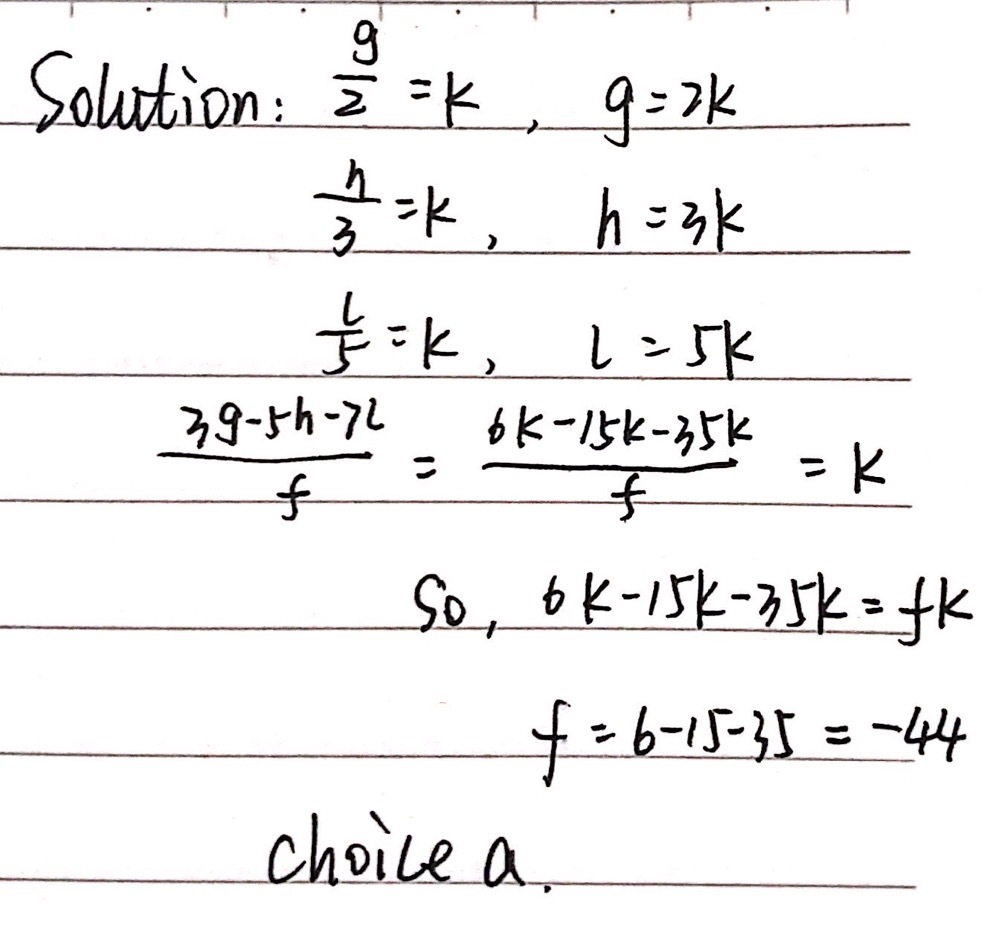 Solution: g/2 = k, g = 2k
h/3 = k, h = 3k
l/5 = k, l = 5k
(3g-5h-7l)/f = (6k-15k-35k)/f = k
So, 6k-15k-35k = fk
f = 6-15-35 = -44
choice a.